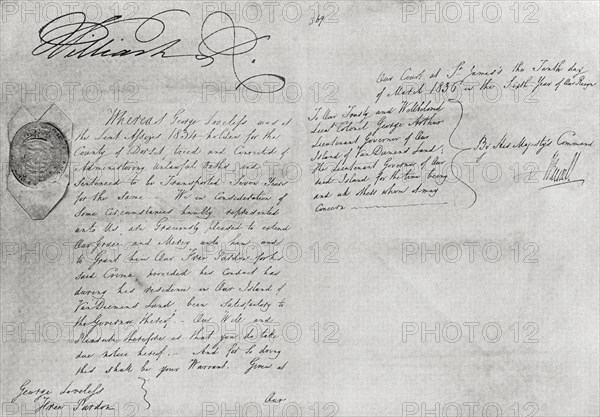 William R.
Whereas George Loveless was at
the Lent Assizes 1834 holden for the
County of Dorset tried and Convicted of
Administering unlawful Oaths and
Sentenced to be Transported Seven Years
for the Same We in Consideration of
Some Circumstances humbly represented
unto Us, are Graciously pleased to extend
Our Grace and Mercy unto him and
to Grant him Our Free Pardon for his
said Crime provided his Conduct has
during his residence in Our Island of
Van Diemens Land been Satisfactory to
the Governor thereof. Our Will and
Pleasure therefore is that you do take
due notice hereof. And for so doing
this shall be your Warrant. Given at
George Loveless
Free Pardon
Our
369
Our Court at St James's the Tenth day
of March 1836 in the Sixth Year of Our Reign
To Our Trusty and Wellbeloved
Lieut Colonel George Arthur
Lieutenant Governor of Our
Island of Van Diemens Land,
the Lieutenant Governor of Our
said Island for the time being
and all others whom it may
concern
By His Majesty's Command
PHOTO12